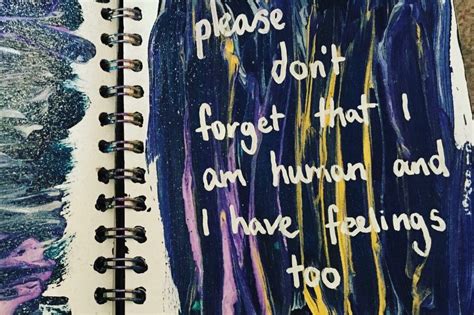 please
don't
forget that I
am human and
I have feelings
too